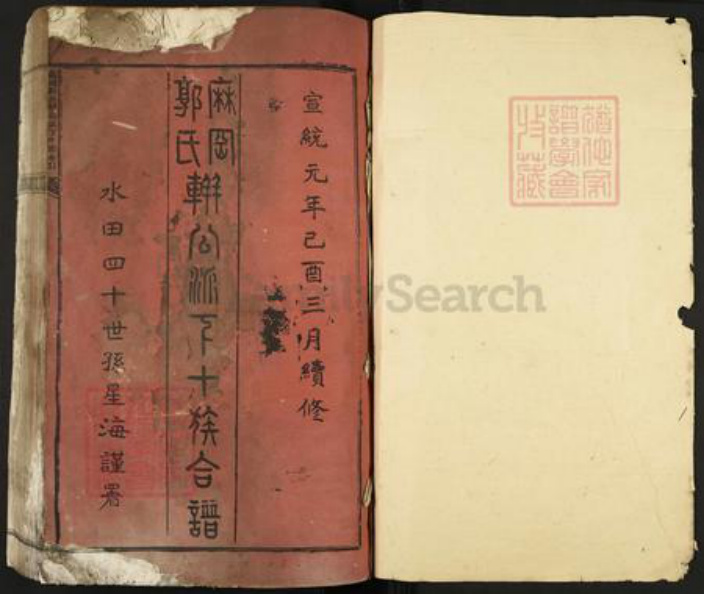 宣統元年己酉三月續修
麻岡
郭氏
輧公派下十族合譜
水田四十世孫星海謹署
FamilySearch